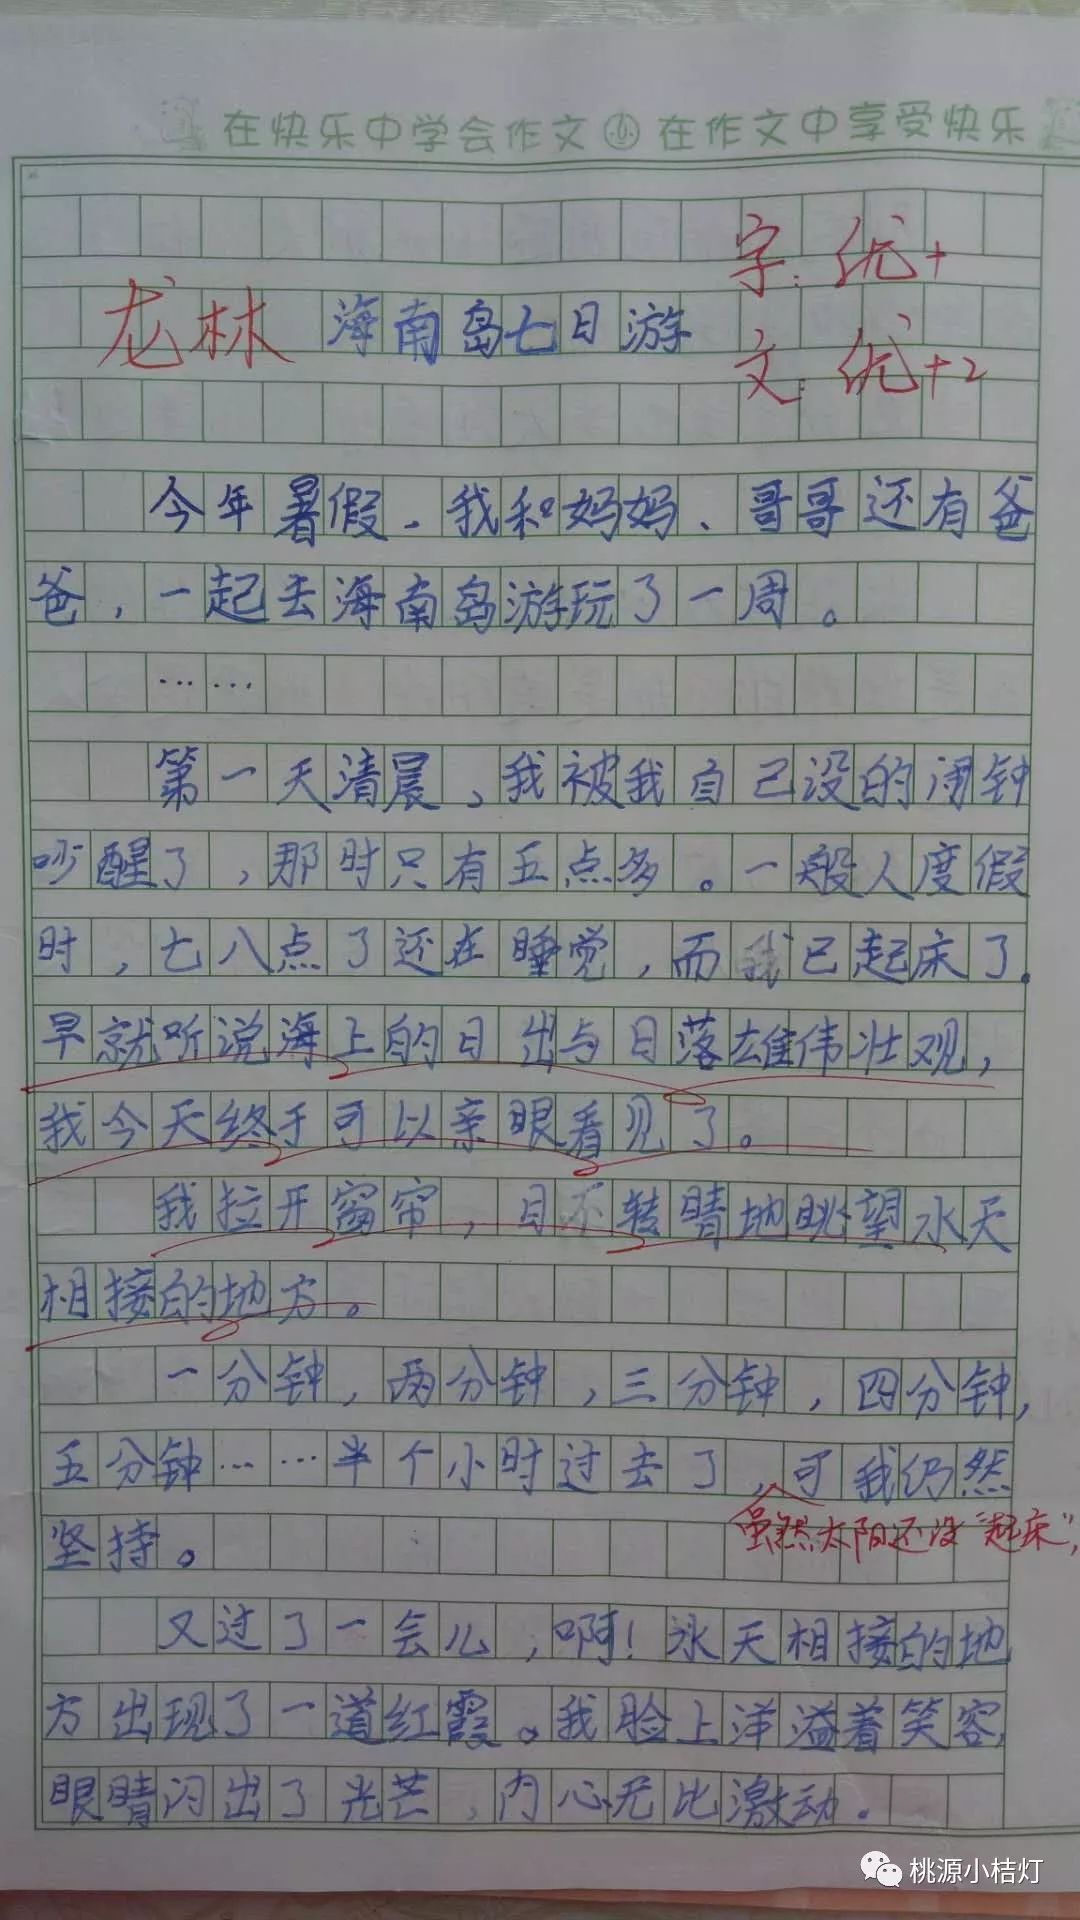 在快乐中学会作文 在作文中享受快乐
字:优+
龙林 海南岛七日游
文:优+2
今年暑假、我和妈妈、哥哥还有爸
爸，一起去海南岛游玩了一周。
……
第一天清晨，我被我自己设的闹钟
吵醒了，那时只有五点多。一般人度假
时，七八点了还在睡觉，而我已起床了。
早就听说海上的日出与日落雄伟壮观，
我今天终于可以亲眼看见了。
我拉开窗帘，目不转睛地眺望水天
相接的地方。
一分钟，两分钟，三分钟，四分钟，
五分钟……半个小时过去了，可我仍然
虽然太阳还没“起床”，
坚持。
又过了一会儿，啊！水天相接的地
方出现了一道红霞。我脸上洋溢着笑容，
眼睛闪出了光芒，内心无比激动。
桃源小桔灯